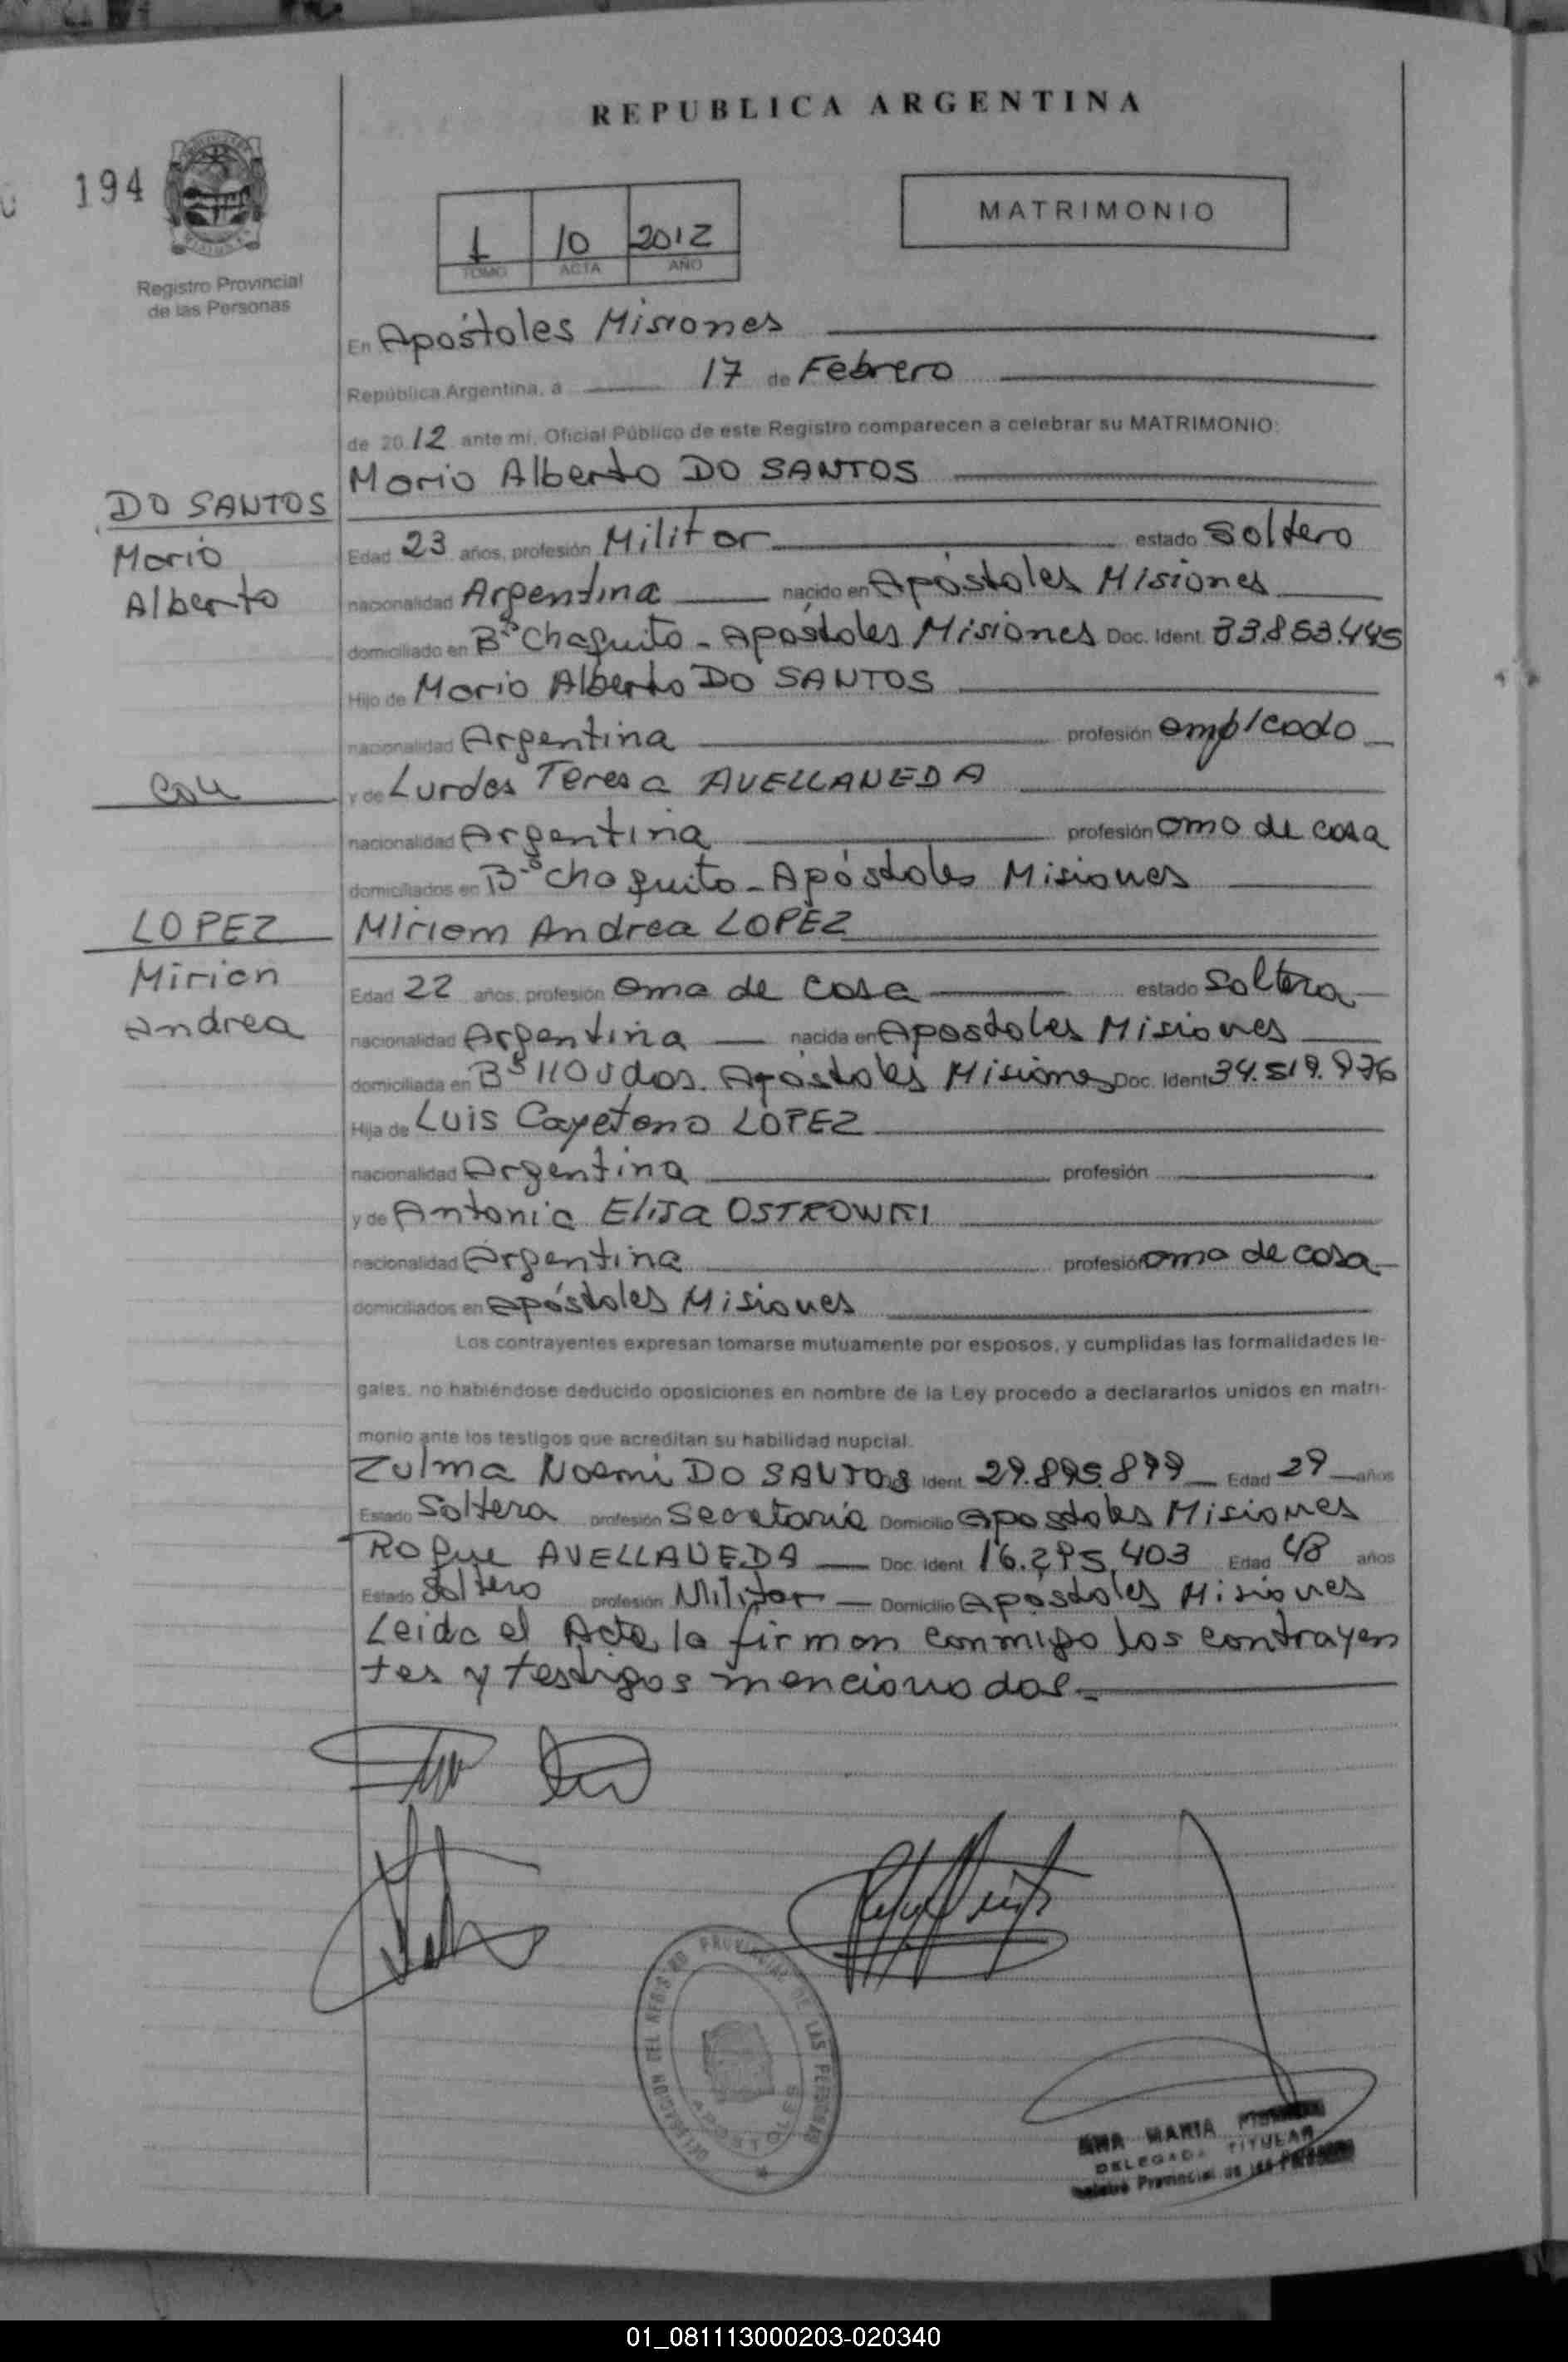 REPUBLICA ARGENTINA
194
1 10 2012
TOMO ACTA AÑO
MATRIMONIO
Registro Provincial
de las Personas
En Apóstoles Misiones
República Argentina, a 17 de Febrero
de 2012 ante mi, Oficial Público de este Registro comparecen a celebrar su MATRIMONIO:
Mario Alberto DO SANTOS
DO SANTOS
Mario
Alberto
Edad 23 años, profesión Militar estado Soltero
nacionalidad Argentina nacido en Apóstoles Misiones
domiciliado en Bº Chaquito - Apóstoles Misiones Doc. Ident. 33.853.445
Hijo de Mario Alberto DO SANTOS
nacionalidad Argentina profesión empleado
con
y de Lurdes Teresa AVELLANEDA
nacionalidad Argentina profesión ama de casa
domiciliados en Bº Chaquito - Apóstoles Misiones
LOPEZ
Mirian
Andrea
Miriam Andrea LOPEZ
Edad 22 años, profesión ama de casa estado Soltera
nacionalidad Argentina nacida en Apostoles Misiones
domiciliada en Bº 110 Vdas. Apóstoles Misiones Doc. Ident. 34.519.976
Hija de Luis Cayetano LOPEZ
nacionalidad Argentina profesión
y de Antonia Elisa OSTROWKI
nacionalidad Argentina profesión ama de casa
domiciliados en Apóstoles Misiones
Los contrayentes expresan tomarse mutuamente por esposos, y cumplidas las formalidades le-
gales, no habiéndose deducido oposiciones en nombre de la Ley procedo a declararlos unidos en matri-
monio ante los testigos que acreditan su habilidad nupcial.
Zulma Noemi DO SANTOS Ident. 29.895.899 Edad 29 años
Estado Soltera profesión Secretaria Domicilio Apostoles Misiones
Roque AVELLANEDA Doc. Ident. 16.295.403 Edad 48 años
Estado Soltero profesión Militar Domicilio Apóstoles Misiones
Leida el Acta, la firman conmigo los contrayen
tes y testigos mencionados.
DELEGACION DEL REGISTRO PROVINCIAL DE LAS PERSONAS
APOSTOLES
ANA MARIA
DELEGADA TITULAR
Registro Provincial de las Personas
01_081113000203-020340